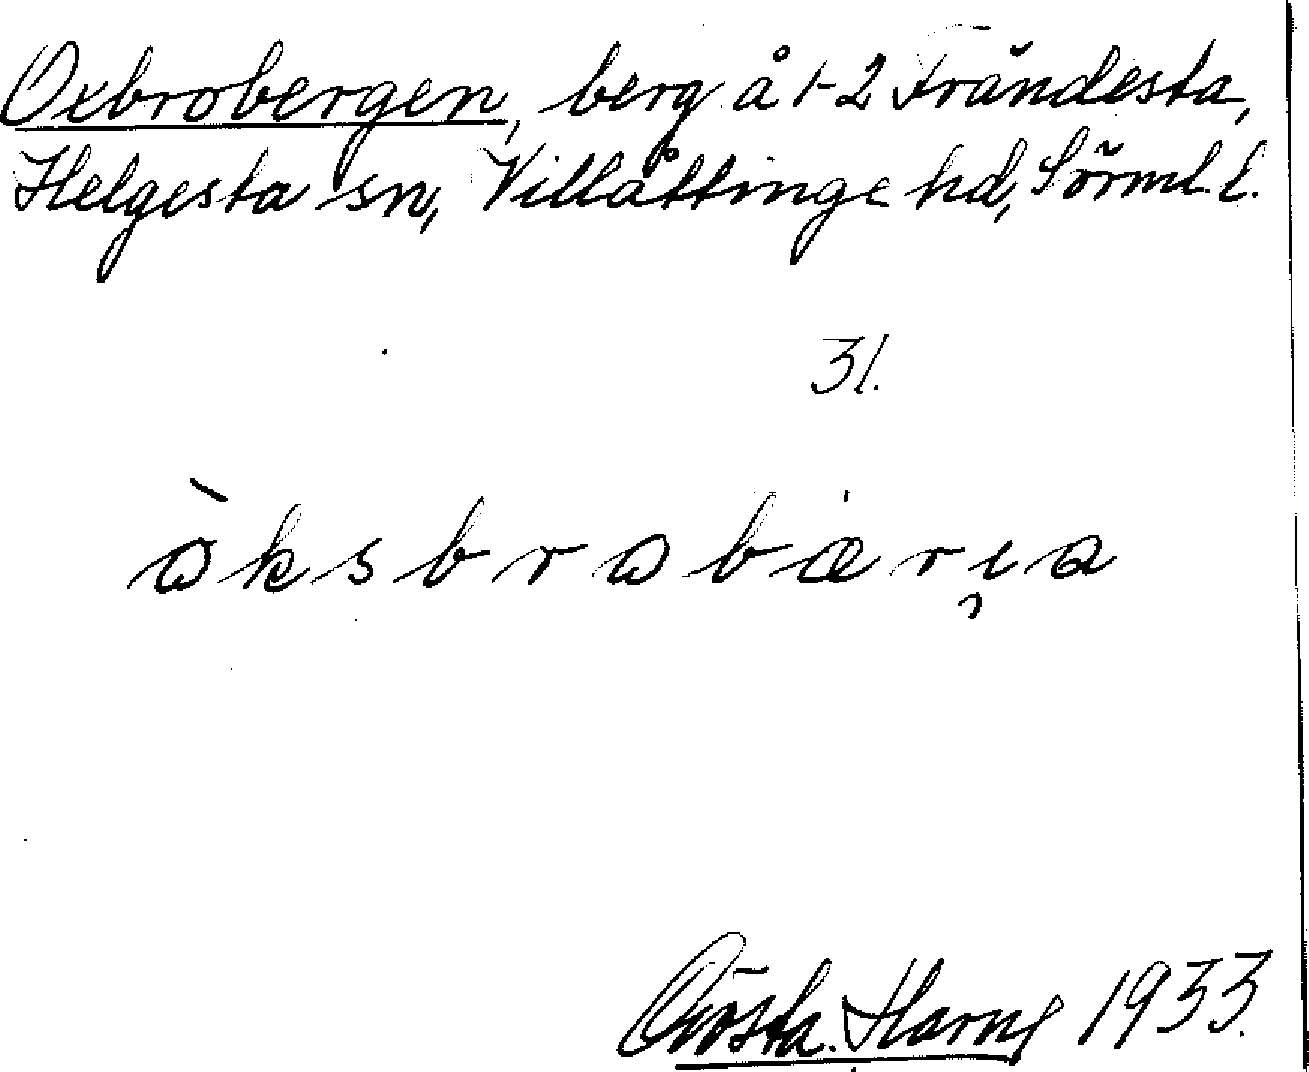 Oxbrobergen, berg å 1-2 Frändesta,
Helgesta sn, Villåttinge hd, Sörml. l.
31.
òksbrobæ̇rɩa
Gösta Harng 1933.